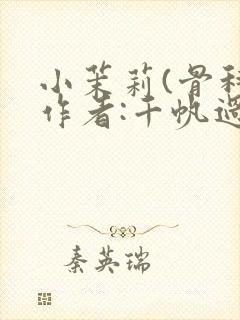 小茉莉(骨科
作者:千帆过
秦英瑞